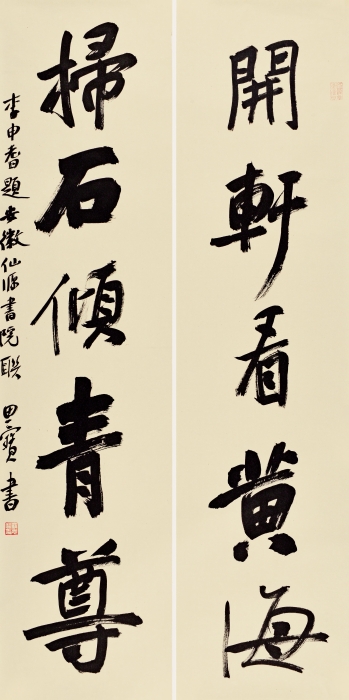 開軒看黄海
掃石傾青尊
李申耆題安徽仙源書院聯 思寶書